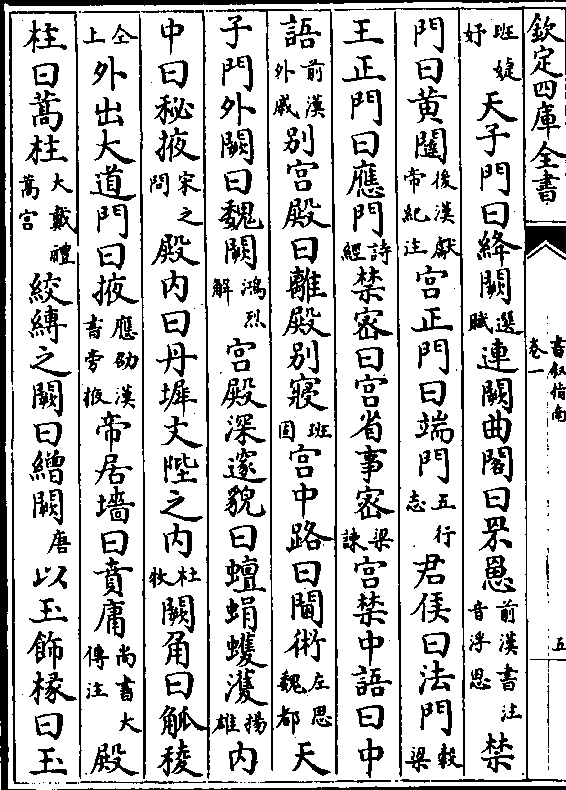 欽定四庫全書
書叙指南
卷一
五
班婕妤 天子門曰絳闕 選賦 連闕曲閣曰罘罳 前漢書注音浮思 禁
門曰黃闥 後漢獻帝紀注 宮正門曰端門 五行志 君侯曰法門 穀梁
王正門曰應門 詩經 禁密曰宮省事密 梁諫 宮禁中語曰中
語 前漢外戚 别宮殿曰離殿别寢 班固 宮中路曰間術 左思魏都 天
子門外闕曰魏闕 鴻烈解 宮殿深邃貌曰蟺蜎蠖濩 揚雄 内
中曰秘掖 宋之問 殿内曰丹墀丈陛之内 杜牧 闕角曰觚稜
仝上 外出大道門曰掖 應劭漢書旁掖 帝居墻曰賁庸 尚書大傳注 殿
柱曰蒿柱 大戴禮蒿宮 絞縛之闕曰繒闕 唐 以玉飾椽曰玉